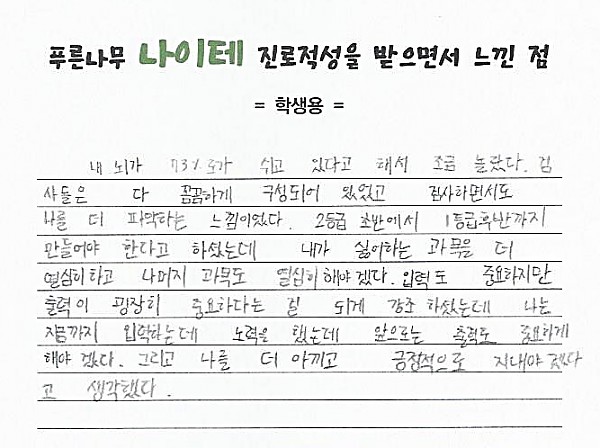 푸른나무 나이테 진로적성을 받으면서 느낀 점
= 학생용 =
내 뇌가 73%로가 쉬고 있다고 해서 조금 놀랐다. 검
사들은 다 꼼꼼하게 구성되어 있었고 검사하면서도
나를 더 파악하는 느낌이었다. 2등급 초반에서 1등급후반까지
만들어야 한다고 하셨는데 내가 싫어하는 과목을 더
열심히 하고 나머지 과목도 열심히 해야 겠다. 입력도 중요하지만
출력이 굉장히 중요하다는 걸 되게 강조 하셨는데 나는
지금까지 입력하는데 노력을 했는데 앞으로는 출력도 중요하게
해야 겠다. 그리고 나를 더 아끼고 긍정적으로 지내야 겠다
고 생각했다.